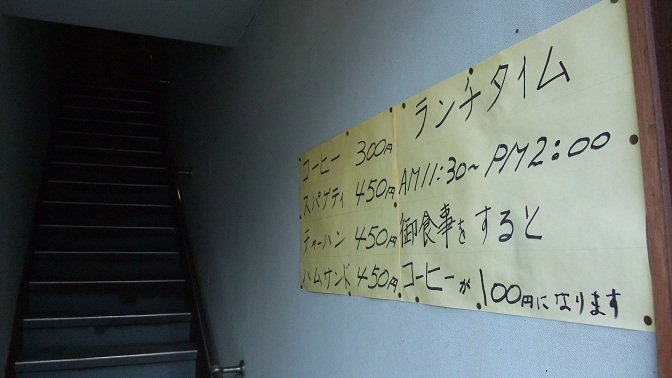 ランチタイム
AM11:30~PM2:00
御食事をすると
コーヒーが100円になります
コーヒー 300円
スパゲティ 450円
チャーハン 450円
ハムサンド 450円